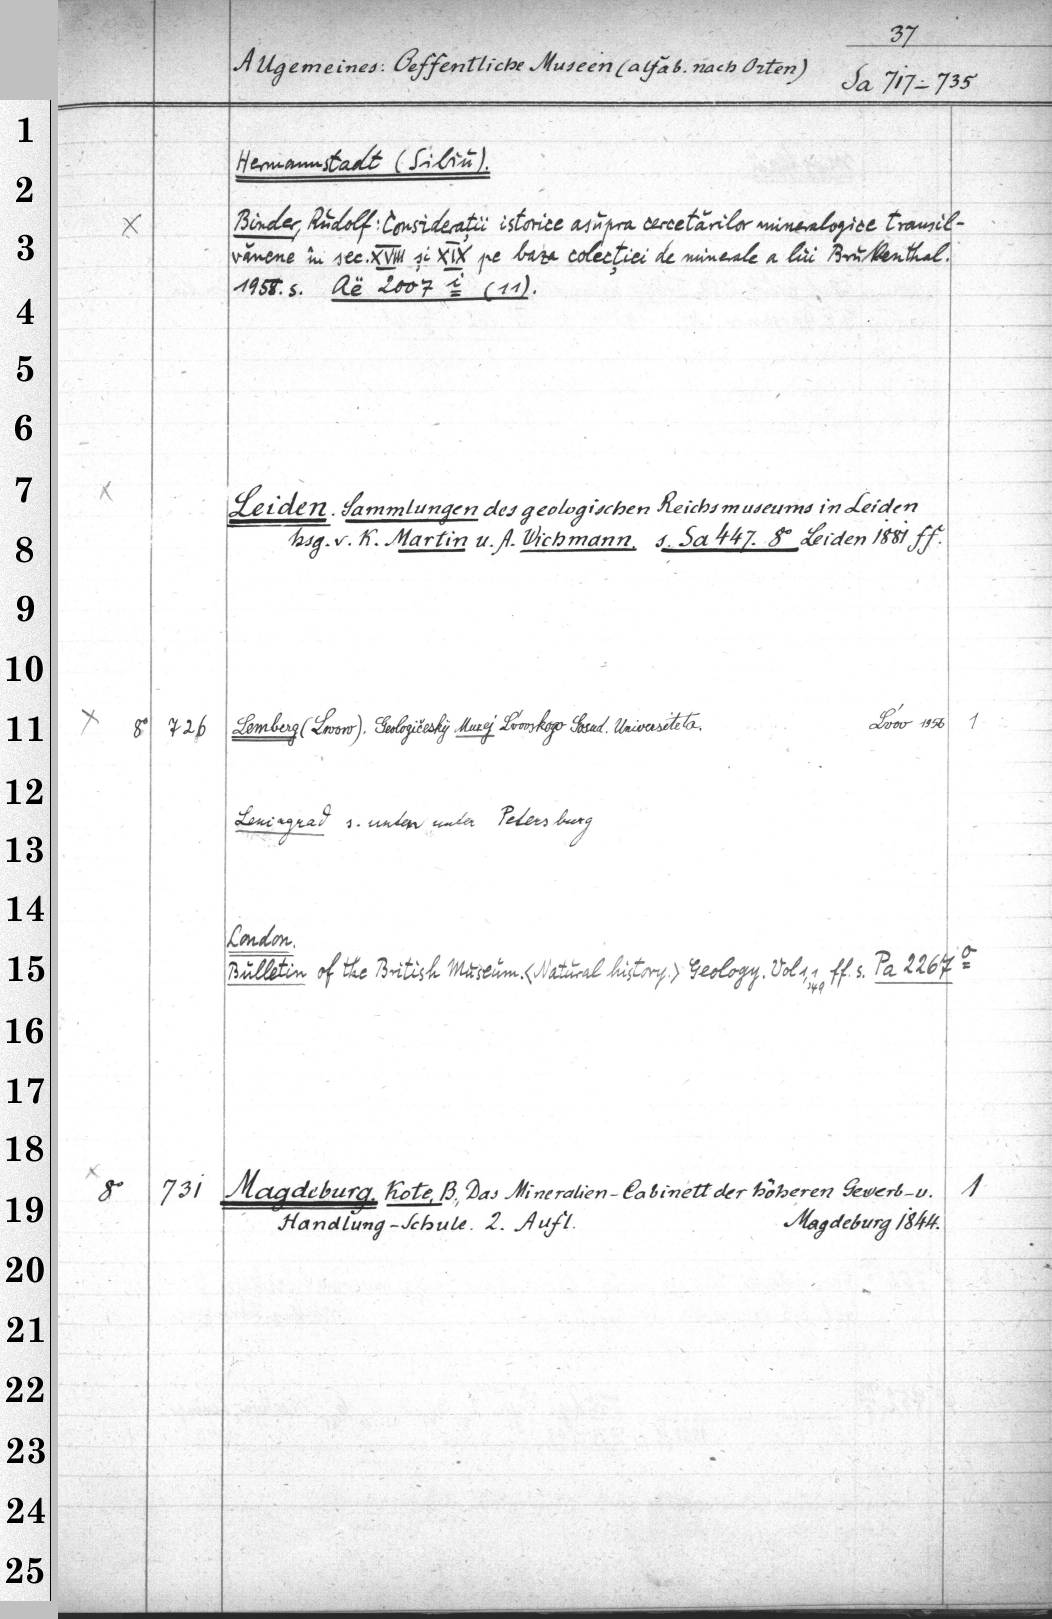 37
Allgemeines: Oeffentliche Museen (alfab. nach Orten)
Sa 717-735
1
2
3
4
5
6
7
8
9
10
11
12
13
14
15
16
17
18
19
20
21
22
23
24
25
Hermannstadt (Sibiŭ).
× Binder, Rŭdolf: Considerații istorice asŭpra cercetărilor mineralogice transil-
vănene în sec. XVIII și XIX pe baza colecției de minerale a lŭi Brŭkenthal.
1958. s. Aë 2007 i (11).
×
Leiden. Sammlungen des geologischen Reichsmuseums in Leiden
hsg. v. K. Martin u. A. Wichmann. s. Sa 447. 8° Leiden 1881 ff.
× 8° 726 Lemberg (Lwow). Geologičeskÿ Muzej L'vovskogo Gosud. Universiteta. L'vov 1956 1
Leningrad s. unten unter Petersburg
London.
Bŭlletin of the British Mŭseŭm. <Natŭral history.> Geology. Vol 1,1 ff. s. Pa 2267 o
1949
× 8° 731 Magdeburg. Kote, B., Das Mineralien-Cabinett der höheren Gewerb- u. 1
Handlung-Schule. 2. Aufl. Magdeburg 1844.